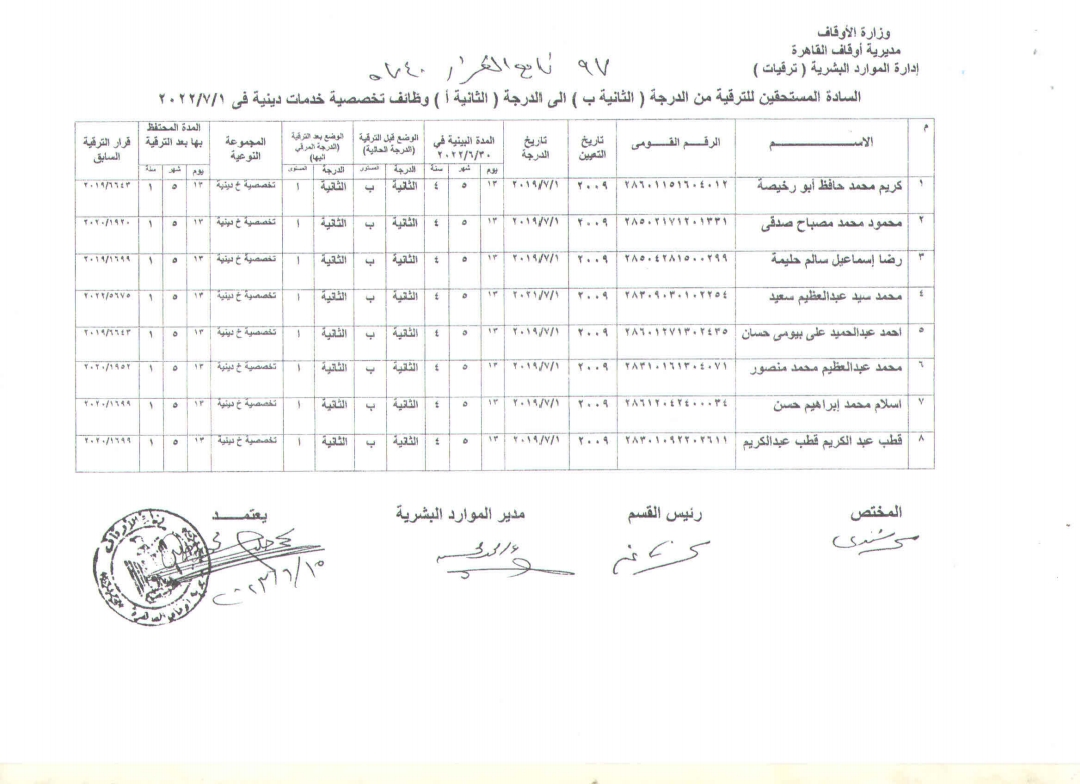 وزارة الأوقاف
مديرية أوقاف القاهرة
إدارة الموارد البشرية ( ترقيات )
٩٧ تابع القرار ٥٧٤٠
السادة المستحقين للترقية من الدرجة ( الثانية ب ) الى الدرجة ( الثانية أ ) وظائف تخصصية خدمات دينية فى ٢٠٢٢/٧/١
م الاســـــــم الرقـــم القــومى تاريخ التعيين تاريخ الدرجة المدة البينية في ٢٠٢٢/٦/٣٠ الوضع قبل الترقية (الدرجة الحالية) الوضع بعد الترقية (الدرجة المرقي اليها) المجموعة النوعية المدة المحتفظ بها بعد الترقية قرار الترقية السابق
يوم شهر سنة الدرجة المستوى الدرجة المستوى يوم شهر سنة
١ كريم محمد حافظ أبو رخيصة ٢٨٦٠١١٥١٦٠٤٠١٢ ٢٠٠٩ ٢٠١٩/٧/١ ١٣ ٥ ٤ الثانية ب الثانية ا تخصصية خ دينية ١٣ ٥ ١ ٢٠١٩/٦٦٤٣
٢ محمود محمد مصباح صدقى ٢٨٥٠٢١٧١٢٠١٣٣١ ٢٠٠٩ ٢٠١٩/٧/١ ١٣ ٥ ٤ الثانية ب الثانية ا تخصصية خ دينية ١٣ ٥ ١ ٢٠٢٠/١٩٢٠
٣ رضا إسماعيل سالم حليمة ٢٨٥٠٤٢٨١٥٠٠٢٩٩ ٢٠٠٩ ٢٠١٩/٧/١ ١٣ ٥ ٤ الثانية ب الثانية ا تخصصية خ دينية ١٣ ٥ ١ ٢٠١٩/١٦٩٩
٤ محمد سيد عبدالعظيم سعيد ٢٨٣٠٩٠٣٠١٠٢٢٥٤ ٢٠٠٩ ٢٠٢١/٧/١ ١٣ ٥ ٤ الثانية ب الثانية ا تخصصية خ دينية ١٣ ٥ ١ ٢٠٢٢/٥٦٧٥
٥ احمد عبدالحميد على بيومى حسان ٢٨٦٠١٢٧١٣٠٢٤٣٥ ٢٠٠٩ ٢٠١٩/٧/١ ١٣ ٥ ٤ الثانية ب الثانية ا تخصصية خ دينية ١٣ ٥ ١ ٢٠١٩/٦٦٤٣
٦ محمد عبدالعظيم محمد منصور ٢٨٣١٠١٦١٣٠٤٠٧١ ٢٠٠٩ ٢٠١٩/٧/١ ١٣ ٥ ٤ الثانية ب الثانية ا تخصصية خ دينية ١٣ ٥ ١ ٢٠٢٠/١٩٥٢
٧ اسلام محمد إبراهيم حسن ٢٨٦١٢٠٤٢٤٠٠٠٣٤ ٢٠٠٩ ٢٠١٩/٧/١ ١٣ ٥ ٤ الثانية ب الثانية ا تخصصية خ دينية ١٣ ٥ ١ ٢٠٢٠/١٦٩٩
٨ قطب عبد الكريم قطب عبدالكريم ٢٨٣٠١٠٩٢٢٠٢٦١١ ٢٠٠٩ ٢٠١٩/٧/١ ١٣ ٥ ٤ الثانية ب الثانية ا تخصصية خ دينية ١٣ ٥ ١ ٢٠٢٠/١٦٩٩
المختص رئيس القسم مدير الموارد البشرية يعتمـــد